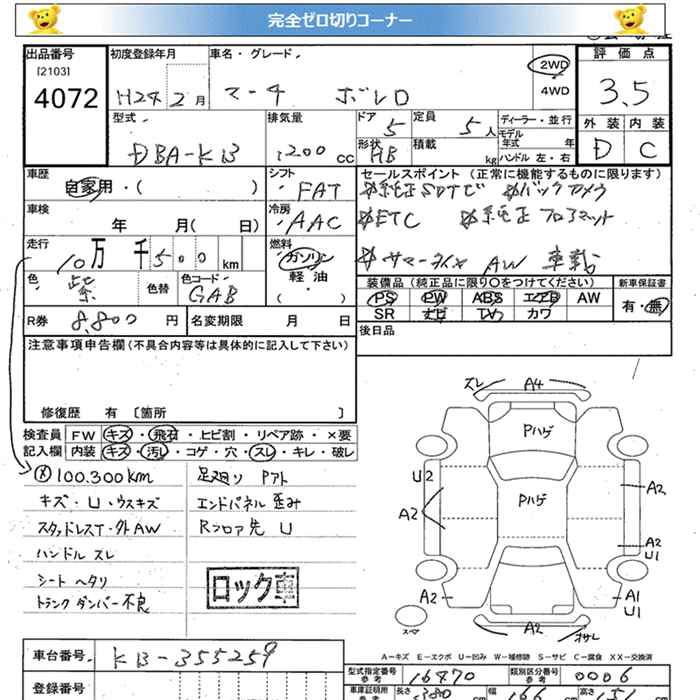 完全ゼロ切りコーナー
出品番号
[2103]
4072
初度登録年月
H24 2月
車名・グレード
マーチ ボレロ
2WD
4WD
評価点
3.5
外装 内装
D C
型式
DBA-K13
排気量
1200 CC
ドア 5
定員 5人
形状 HB
積載 kg
ディーラー・並行
モデル
年式 年
ハンドル 左・右
車歴
自家用・( )
シフト
FAT
車検
年 月( 日)
冷房
AAC
走行
10万 千500 km
燃料
ガソリン
・
軽油
( )
色
紫
色替
色コード
GAB
R券 8,800 円
名変期限 月 日
セールスポイント(正常に機能するものに限ります)
※純正SDナビ ※バックカメラ
※ETC ※純正フロアマット
※サマータイヤ AW 車載
装備品(純正品に限り〇をつけてください)
PS PW ABS エアB AW
SR ナビ TV カワ
新車保証書
有・無
後日品
注意事項申告欄(不具合内容等は具体的に記入して下さい)
修復歴 有 〔箇所 〕
検査員
記入欄
FW キズ・飛石・ヒビ割・リペア跡・×要
内装 キズ・汚レ・コゲ・穴・スレ・キレ・破レ
100.300km
キズ・U・ウスキズ
スタッドレスT・外AW
ハンドル スレ
シート ヘタリ
トランク ダンパー不良
足廻り Pアト
エンドパネル 歪み
Rフロア先 U
ロック車
ズレ A4
Pハゲ
Pハゲ
U2
A2
A2
A2
U1
A2
A1
U1
スペア
A2
オサレ
A-キズ E-エクボ U-凹み W-補修跡 S-サビ C-腐食 XX-交換済
車台番号 K13-355259
登録番号
型式指定番号
参考
16870
類別区分番号
参考
0006
車庫証明用
参考
長さ
380
幅
166
高さ
151